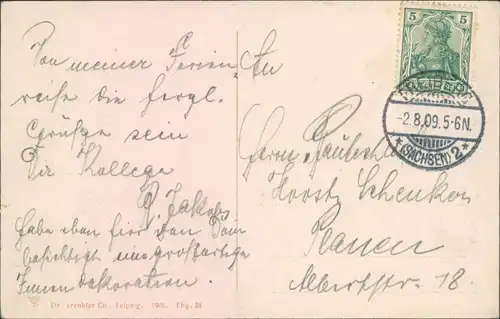 Von meiner Ferien-
reise die herzl.
Grüße sein
Dir Kollege
P. Jakob
Habe eben hier den Dom
besichtigt eine großartige
Innendekoration.
An
Herrn
Horst Schenker
Plauen
Albertstr. 18.
5 5
-2.8.09.5-6N.
*(SACHSEN) 2*
Dr. Trenkler Co., Leipzig. 1905. Fbg. 24